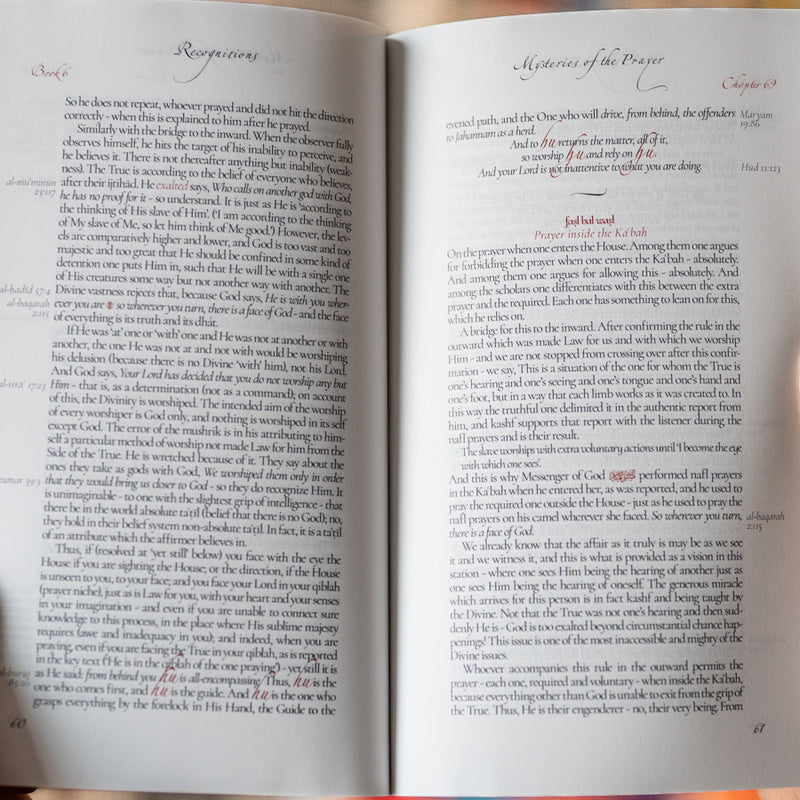 Recognitions
Book 6
So he does not repeat, whoever prayed and did not hit the direction
correctly - when this is explained to him after he prayed.
Similarly with the bridge to the inward. When the observer fully
observes himself, he hits the target of his inability to perceive, and
he believes it. There is not thereafter anything but inability (weak-
ness). The True is according to the belief of everyone who believes,
al-mu'minūn after their ijtihād. He exalted says, Who calls on another god with God,
23:117 he has no proof for it - so understand. It is just as He is 'according to
the thinking of His slave of Him'. ('I am according to the thinking
of My slave of Me, so let him think of Me good.') However, the lev-
els are comparatively higher and lower, and God is too vast and too
majestic and too great that He should be confined in some kind of
detention one puts Him in, such that He will be with a single one
of His creatures some way but not another way with another. The
al-ḥadīd 57:4 Divine vastness rejects that, because God says, He is with you wher-
al-baqarah ever you are so wherever you turn, there is a face of God - and the face
2:115 of everything is its truth and its dhāt.
If He was 'at' one or 'with' one and He was not at another or with
another, the one He was not at and not with would be worshiping
his delusion (because there is no Divine 'with' him), not his Lord.
And God says, Your Lord has decided that you do not worship any but
al-isrā' 17:23 Him - that is, as a determination (not as a command); on account
of this, the Divinity is worshiped. The intended aim of the worship
of every worshiper is God only, and nothing is worshiped in its self
except God. The error of the mushrik is in his attributing to him-
self a particular method of worship not made Law for him from the
Side of the True. He is wretched because of it. They say about the
ones they take as gods with God, We worshiped them only in order
zumar 39:3 that they would bring us closer to God - so they do recognize Him. It
is unimaginable - to one with the slightest grip of intelligence - that
there be in the world absolute ta'ṭīl (belief that there is no God); no,
they hold in their belief system non-absolute ta'ṭīl. In fact, it is a ta'ṭīl
of an attribute which the affirmer believes in.
Thus, if (resolved at 'yet still' below) you face with the eye the
House if you are sighting the House; or the direction, if the House
is unseen to you, to your face; and you face your Lord in your qiblah
(prayer niche), just as is Law for you, with your heart and your senses
in your imagination - and even if you are unable to connect sure
knowledge to this process, in the place where His sublime majesty
requires (awe and inadequacy in you); and indeed, when you are
praying, even if you are facing the True in your qiblah, as is reported
in the key text ('He is in the qiblah of the one praying') - yet still it is
al-burūj as He said: from behind you hu is all-encompassing. Thus, hu is the
one who comes first, and hu is the guide. And hu is the one who
grasps everything by the forelock in His Hand, the Guide to the
60
Mysteries of the Prayer
Chapter 69
evened path, and the One who will drive, from behind, the offenders Maryam
to Jahannam as a herd. 19:86
And to hu returns the matter, all of it,
so worship hu and rely on hu.
And your Lord is not inattentive to what you are doing. Hūd 11:123
faṣl bal waṣl
Prayer inside the Ka'bah
On the prayer when one enters the House. Among them one argues
for forbidding the prayer when one enters the Ka'bah - absolutely.
And among them one argues for allowing this - absolutely. And
among the scholars one differentiates with this between the extra
prayer and the required. Each one has something to lean on for this,
which he relies on.
A bridge for this to the inward. After confirming the rule in the
outward which was made Law for us and with which we worship
Him - and we are not stopped from crossing over after this confir-
mation - we say, This is a situation of the one for whom the True is
one's hearing and one's seeing and one's tongue and one's hand and
one's foot, but in a way that each limb works as it was created to. In
this way the truthful one delimited it in the authentic report from
him, and kashf supports that report with the listener during the
nafl prayers and is their result.
The slave worships with extra voluntary actions until 'I become the eye
with which one sees'.
And this is why Messenger of God performed nafl prayers
in the Ka'bah when he entered her, as was reported, and he used to
pray the required one outside the House - just as he used to pray the
nafl prayers on his camel wherever she faced. So wherever you turn, al-baqarah
there is a face of God. 2:115
We already know that the affair as it truly is may be as we see
it and we witness it, and this is what is provided as a vision in this
station - where one sees Him being the hearing of another just as
one sees Him being the hearing of oneself. The generous miracle
which arrives for this person is in fact kashf and being taught by
the Divine. Not that the True was not one's hearing and then sud-
denly He is - God is too exalted beyond circumstantial chance hap-
penings! This issue is one of the most inaccessible and mighty of the
Divine issues.
Whoever accompanies this rule in the outward permits the
prayer - each one, required and voluntary - when inside the Ka'bah,
because everything other than God is unable to exit from the grip of
the True. Thus, He is their engenderer - no, their very being. From
61